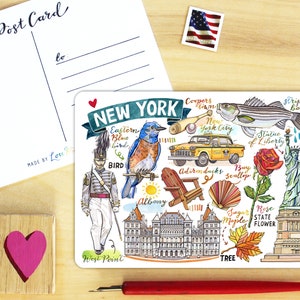 Post Card
to
MADE BY
NEW YORK
Coopers
Town
New
York City
Eastern
Blue
bird
BIRD
Statue of
Liberty
Adirondacks
Bay
Scallop
Albany
Sugar
Maple
Rose
STATE
FLOWER
TREE
West Point